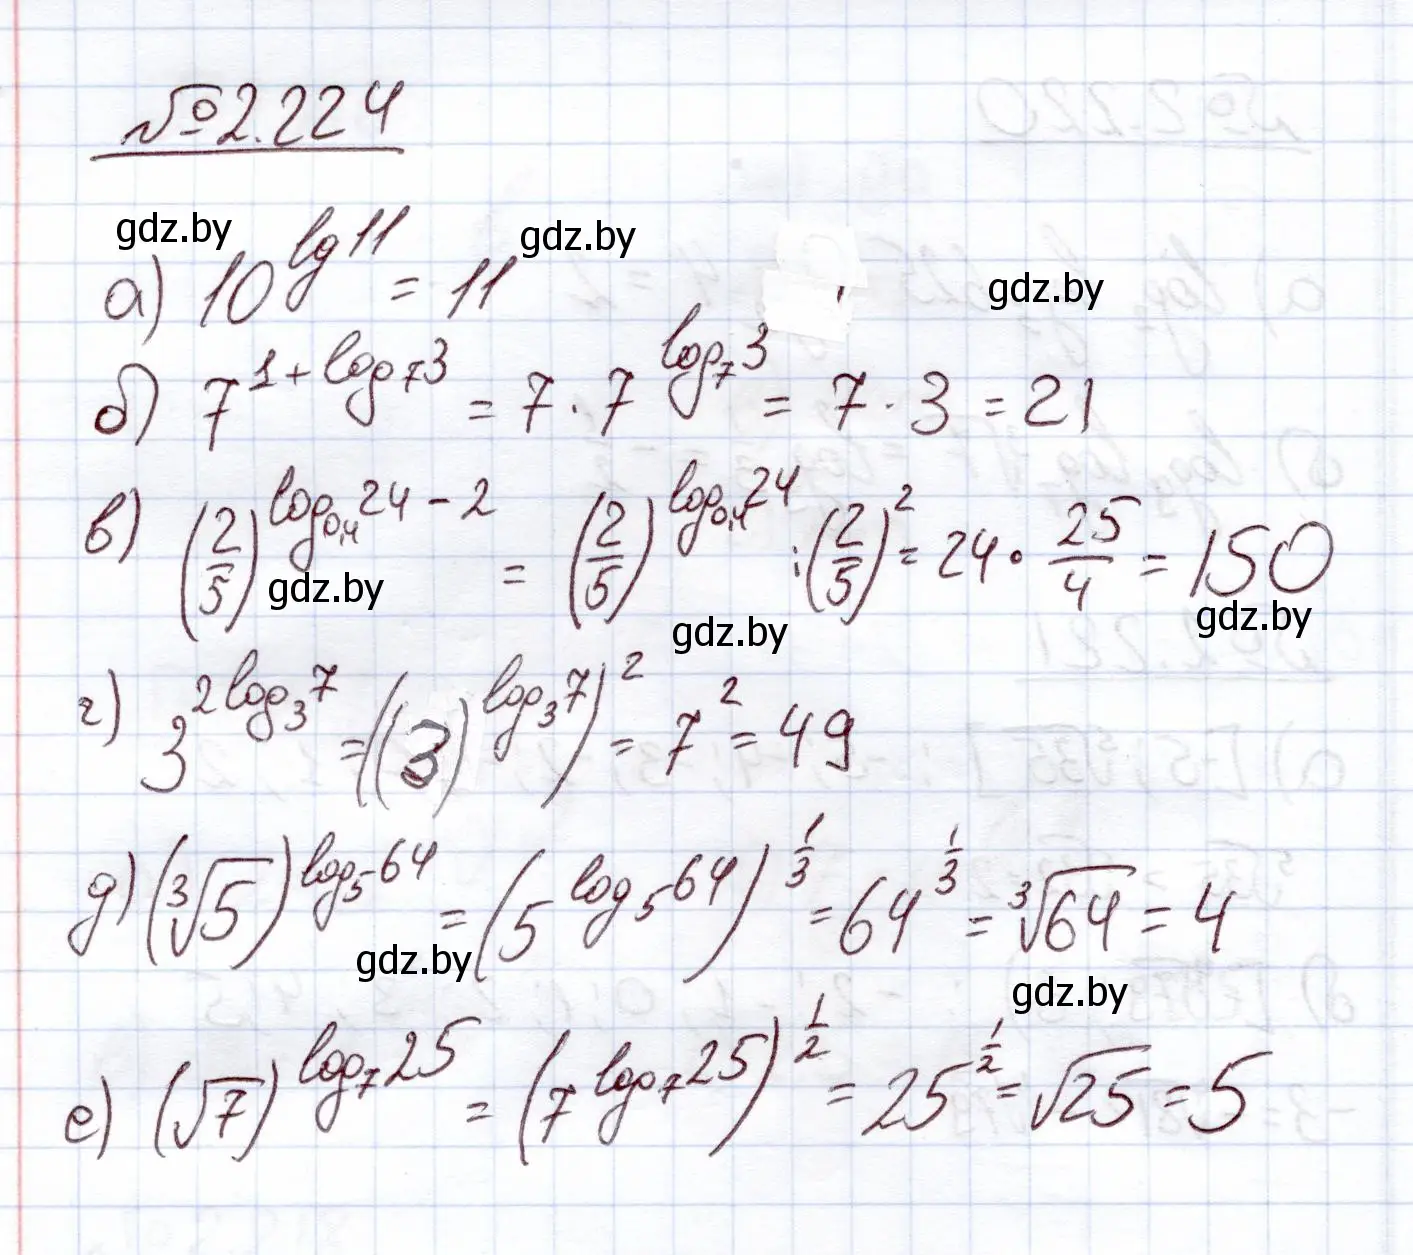 №2.224
gdz.by gdz.by gdz.by
а) 10^{lg 11} = 11
б) 7^{1+log_7 3} = 7 · 7^{log_7 3} = 7 · 3 = 21
в) (2/5)^{log_{0,4} 24 - 2} = (2/5)^{log_{0,4} 24} : (2/5)^2 = 24 · 25/4 = 150
gdz.by gdz.by gdz.by
г) 3^{2log_3 7} = ((3)^{log_3 7})^2 = 7^2 = 49
д) (∛5)^{log_5 64} = (5^{log_5 64})^{1/3} = 64^{1/3} = ∛64 = 4
gdz.by gdz.by
е) (√7)^{log_7 25} = (7^{log_7 25})^{1/2} = 25^{1/2} = √25 = 5